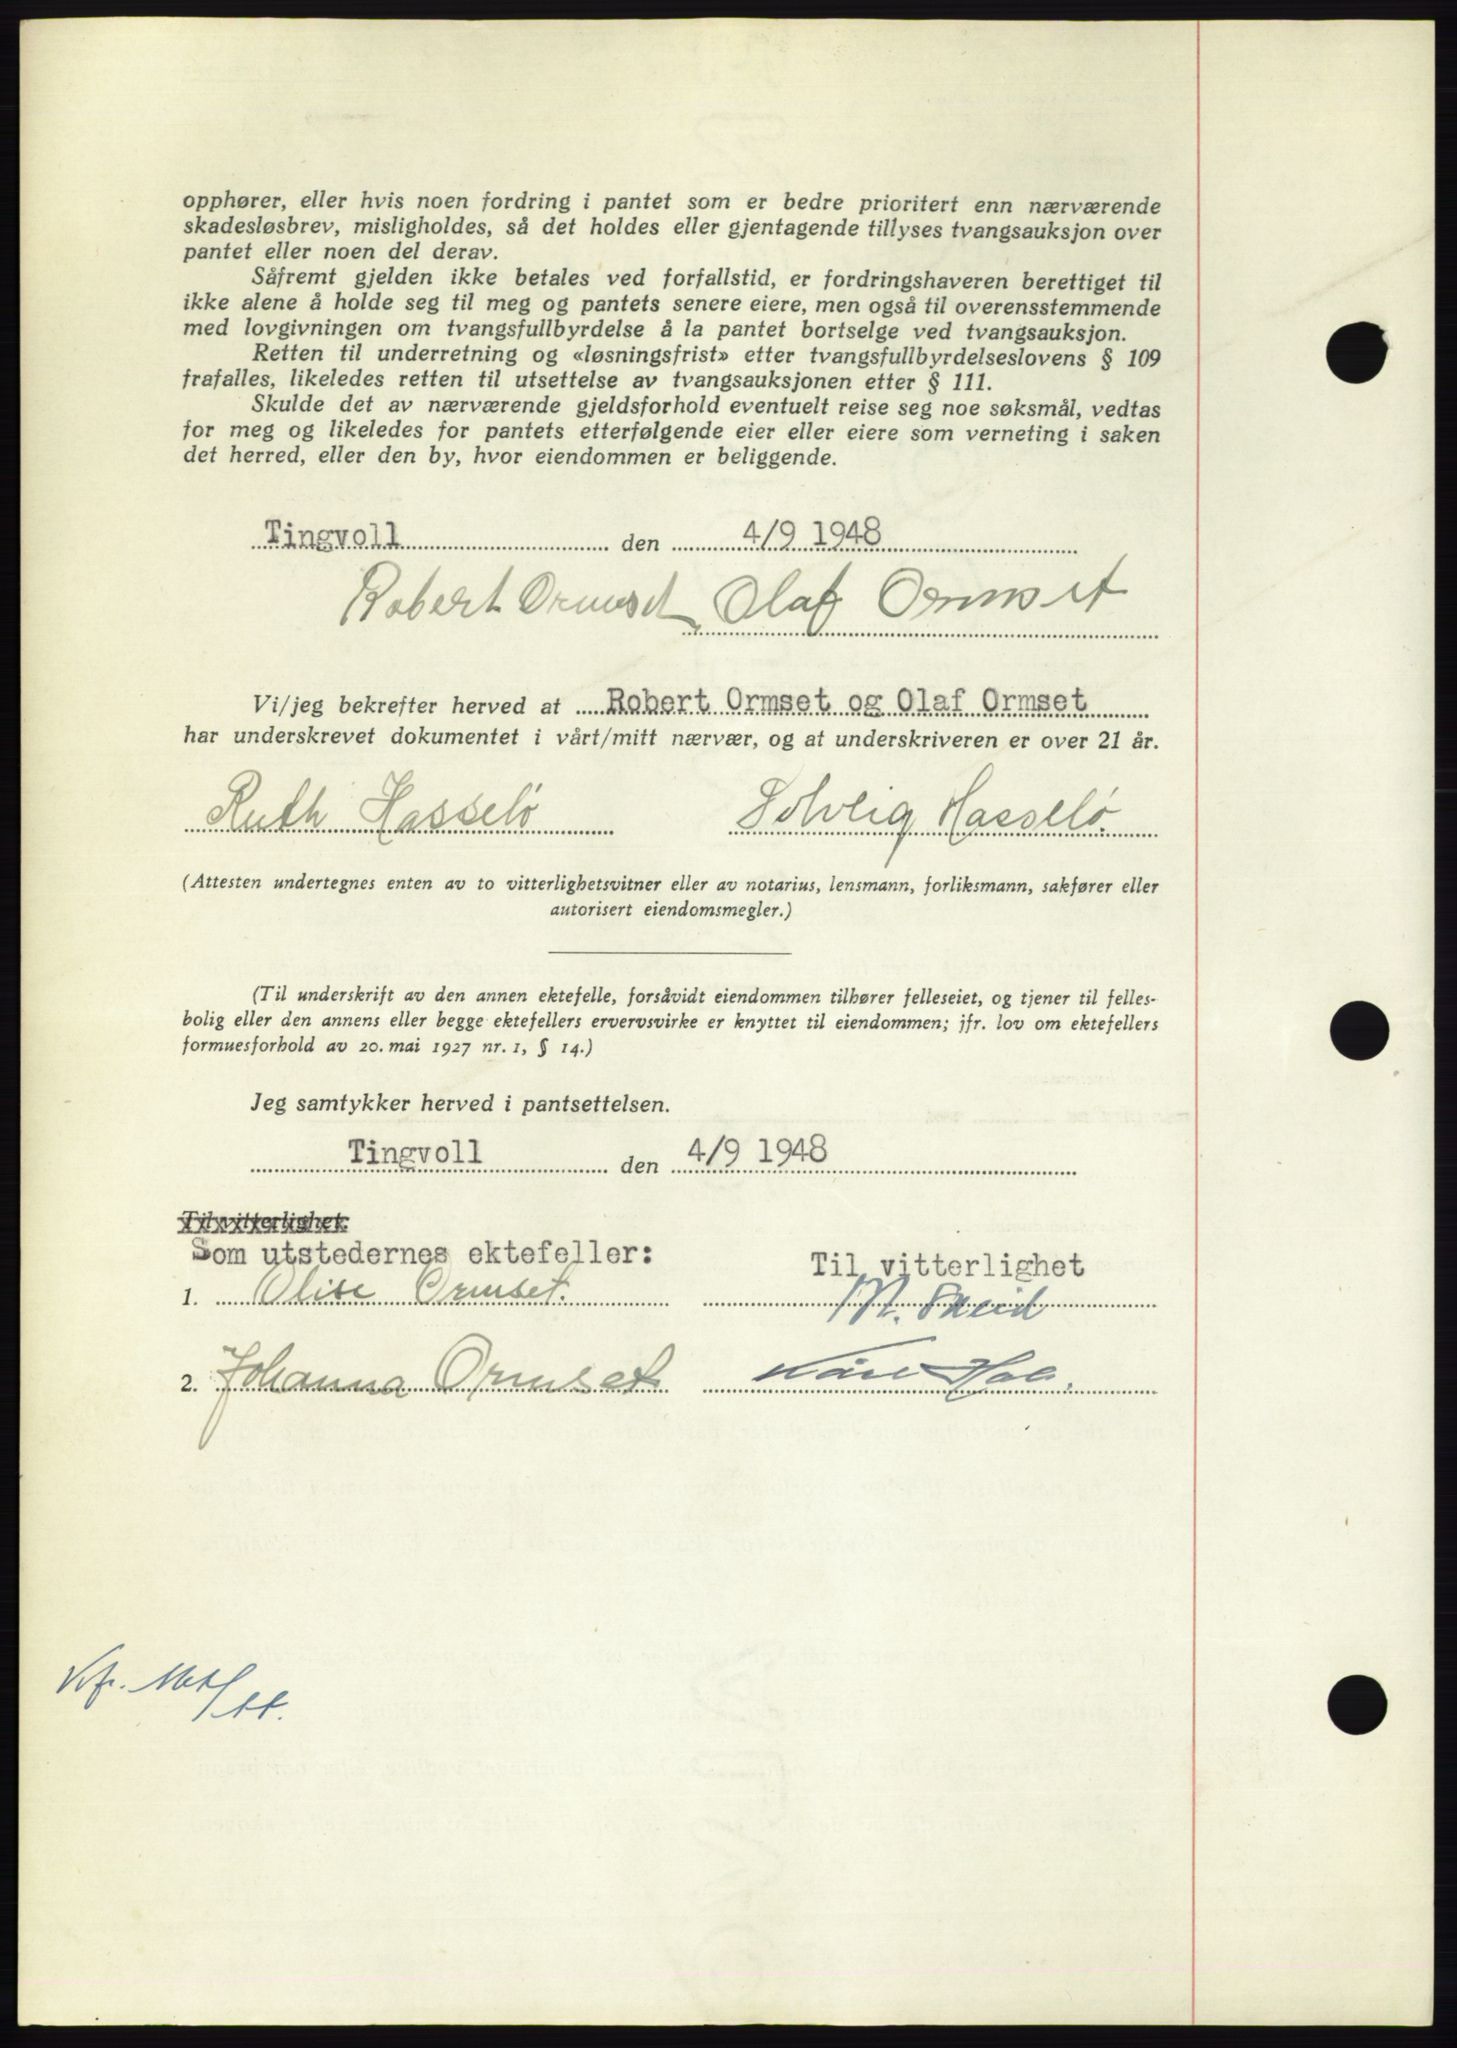 opphører, eller hvis noen fordring i pantet som er bedre prioritert enn nærværende
skadesløsbrev, misligholdes, så det holdes eller gjentagende tillyses tvangsauksjon over
pantet eller noen del derav.
Såfremt gjelden ikke betales ved forfallstid, er fordringshaveren berettiget til
ikke alene å holde seg til meg og pantets senere eiere, men også til overensstemmende
med lovgivningen om tvangsfullbyrdelse å la pantet bortselge ved tvangsauksjon.
Retten til underretning og «løsningsfrist» etter tvangsfullbyrdelseslovens § 109
frafalles, likeledes retten til utsettelse av tvangsauksjonen etter § 111.
Skulde det av nærværende gjeldsforhold eventuelt reise seg noe søksmål, vedtas
for meg og likeledes for pantets etterfølgende eier eller eiere som verneting i saken
det herred, eller den by, hvor eiendommen er beliggende.
Tingvoll den 4/9 1948
Robert Ormset Olaf Ormset
Vi/jeg bekrefter herved at Robert Ormset og Olaf Ormset
har underskrevet dokumentet i vårt/mitt nærvær, og at underskriveren er over 21 år.
Ruth Hasselø Solveig Hasselø
(Attesten undertegnes enten av to vitterlighetsvitner eller av notarius, lensmann, forliksmann, sakfører eller
autorisert eiendomsmegler.)
(Til underskrift av den annen ektefelle, forsåvidt eiendommen tilhører felleseiet, og tjener til felles-
bolig eller den annens eller begge ektefellers ervervsvirke er knyttet til eiendommen; jfr. lov om ektefellers
formuesforhold av 20. mai 1927 nr. 1, § 14.)
Jeg samtykker herved i pantsettelsen.
Tingvoll den 4/9 1948
Til vitterlighet
Som utstedernes ektefeller: Til vitterlighet
1. Olise Ormset. M. Skeid
2. Johanna Ormset Kåre